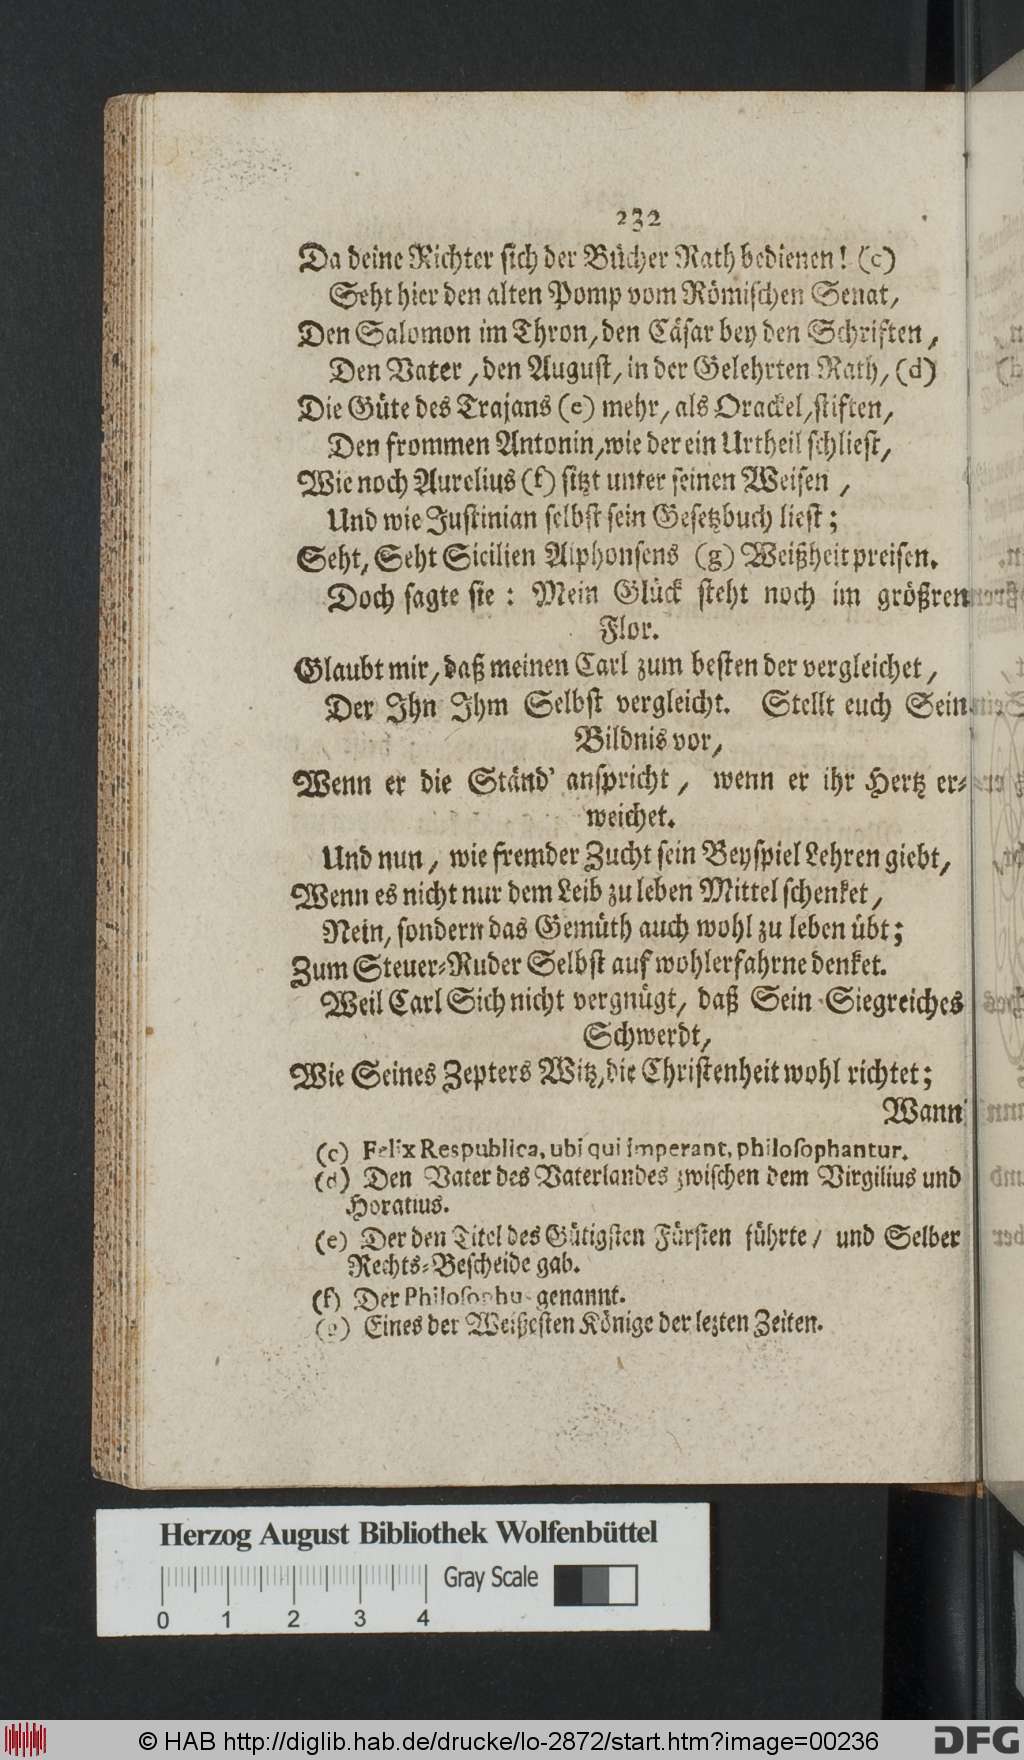 232
Da deine Richter sich der Bücher Rath bedienen! (c)
Seht hier den alten Pomp vom Römischen Senat,
Den Salomon im Thron, den Cäsar bey den Schriften,
Den Vater, den August, in der Gelehrten Rath, (d)
Die Güte des Trajans (e) mehr, als Orackel, stiften,
Den frommen Antonin, wie der ein Urtheil schliest,
Wie noch Aurelius (f) sitzt unter seinen Weisen,
Und wie Justinian selbst sein Gesetzbuch liest;
Seht, Seht Sicilien Alphonsens (g) Weißheit preisen.
Doch sagte sie: Mein Glück steht noch im größren
Flor.
Glaubt mir, daß meinen Carl zum besten der vergleichet,
Der Ihn Ihm Selbst vergleicht. Stellt euch Sein
Bildnis vor,
Wenn er die Ständ' anspricht, wenn er ihr Hertz er-
weichet.
Und nun, wie fremder Zucht sein Beyspiel Lehren giebt,
Wenn es nicht nur dem Leib zu leben Mittel schenket,
Nein, sondern das Gemüth auch wohl zu leben übt;
Zum Steuer-Ruder Selbst auf wohlerfahrne denket.
Weil Carl Sich nicht vergnügt, daß Sein Siegreiches
Schwerdt,
Wie Seines Zepters Witz, die Christenheit wohl richtet;
Wann
(c) Felix Respublica, ubi qui imperant, philosophantur.
(d) Den Vater des Vaterlandes zwischen dem Virgilius und
Horatius.
(e) Der den Titel des Gütigsten Fürsten führte / und Selber
Rechts-Bescheide gab.
(f) Der Philosophus genannt.
(g) Eines der Weißesten Könige der lezten Zeiten.
Herzog August Bibliothek Wolfenbüttel
Gray Scale
0 1 2 3 4
© HAB http://diglib.hab.de/drucke/lo-2872/start.htm?image=00236
DFG